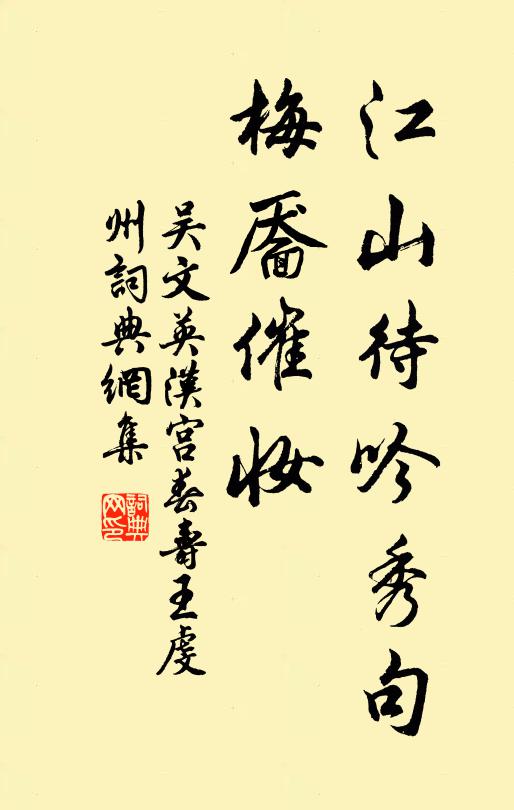 江山待吟秀句
梅靨催妝
吴文英漢宫春壽王虔
州詞典網集
詞典網印